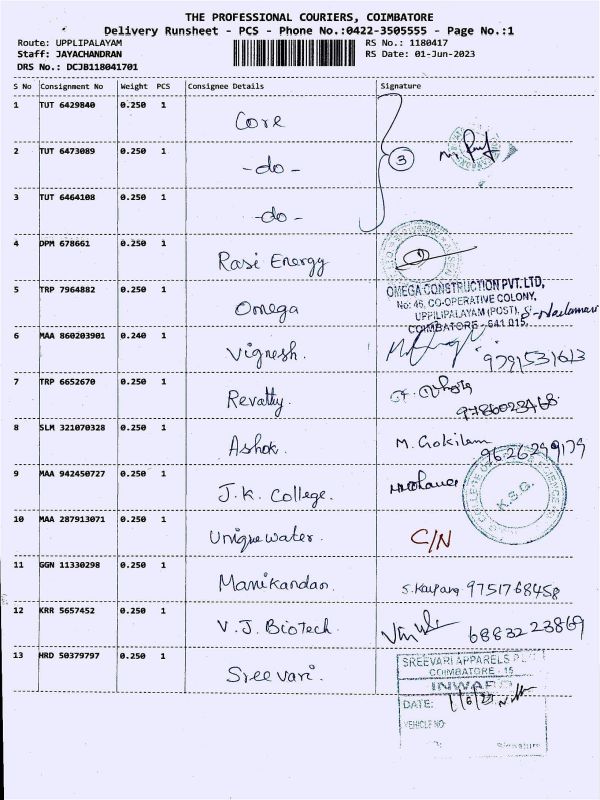 THE PROFESSIONAL COURIERS, COIMBATORE
Delivery Runsheet - PCS - Phone No.:0422-3505555 - Page No.:1
Route: UPPLIPALAYAM RS No.: 1180417
Staff: JAYACHANDRAN RS Date: 01-Jun-2023
DRS No.: DCJB118041701
S No Consignment No Weight PCS Consignee Details Signature
1 TUT 6429840 0.250 1 Core
2 TUT 6473089 0.250 1 -do- 3
3 TUT 6464108 0.250 1 -do-
4 DPM 678661 0.250 1 Rasi Energy
5 TRP 7964882 0.250 1 Omega
OMEGA CONSTRUCTION PVT. LTD,
No: 46, CO-OPERATIVE COLONY,
UPPILIPALAYAM (POST),
COIMBATORE - 641 015.
6 MAA 860203901 0.240 1 Vignesh. 9791531613
7 TRP 6652670 0.250 1 Revathy. 9786023468
8 SLM 321070328 0.250 1 Ashok. M. Gokilam 9626299179
9 MAA 942450727 0.250 1 J.K. College. K.S.G.
10 MAA 287913071 0.250 1 Unique water. C/N
11 GGN 11330298 0.250 1 Manikandan. 9751768458
12 KRR 5657452 0.250 1 V.J. Biotech. 6883223869
13 HRD 50379797 0.250 1 Sreevari.
SREEVARI APPARELS
COIMBATORE - 15
INWARD
DATE: 1/6/23
VEHICLE NO
Signature